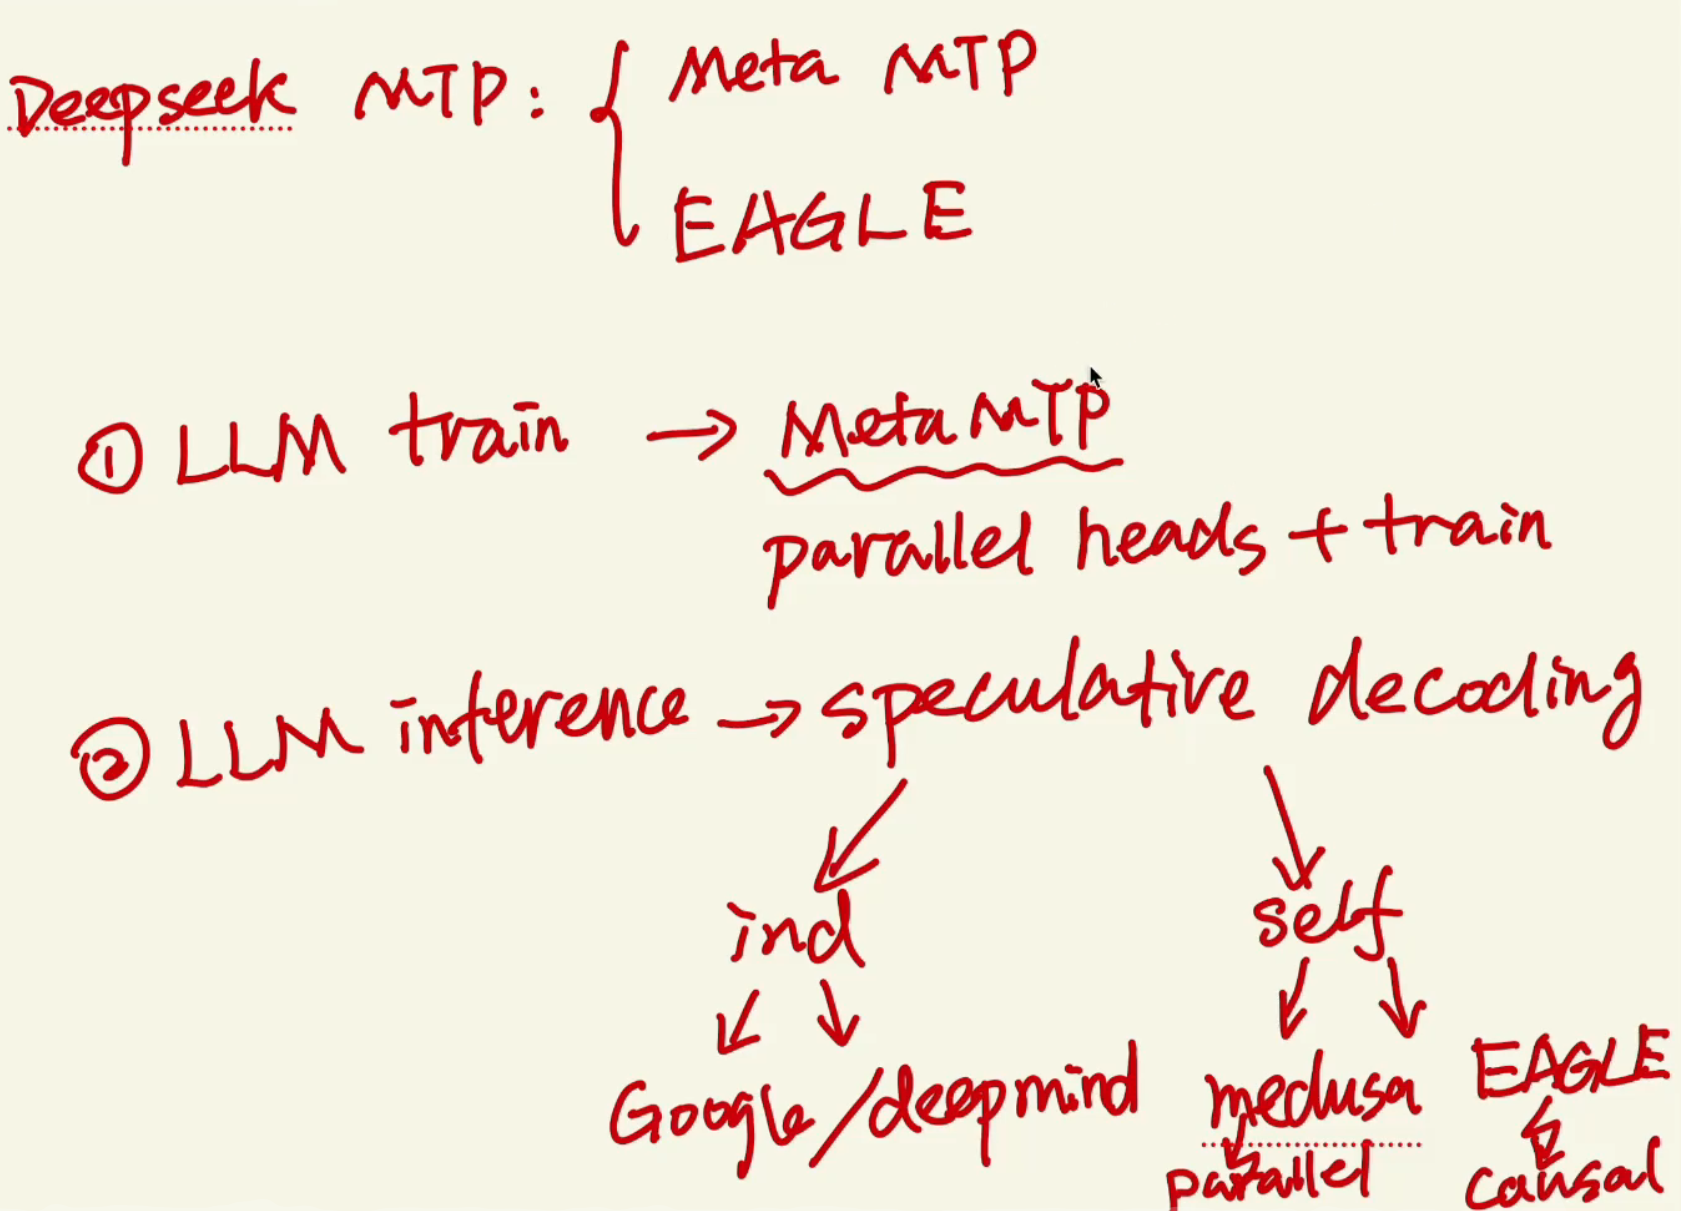 Deepseek MTP: { Meta MTP
EAGLE
① LLM train → Meta MTP
parallel heads + train
② LLM inference → speculative decoding
ind self
Google/deepmind medusa EAGLE
parallel causal